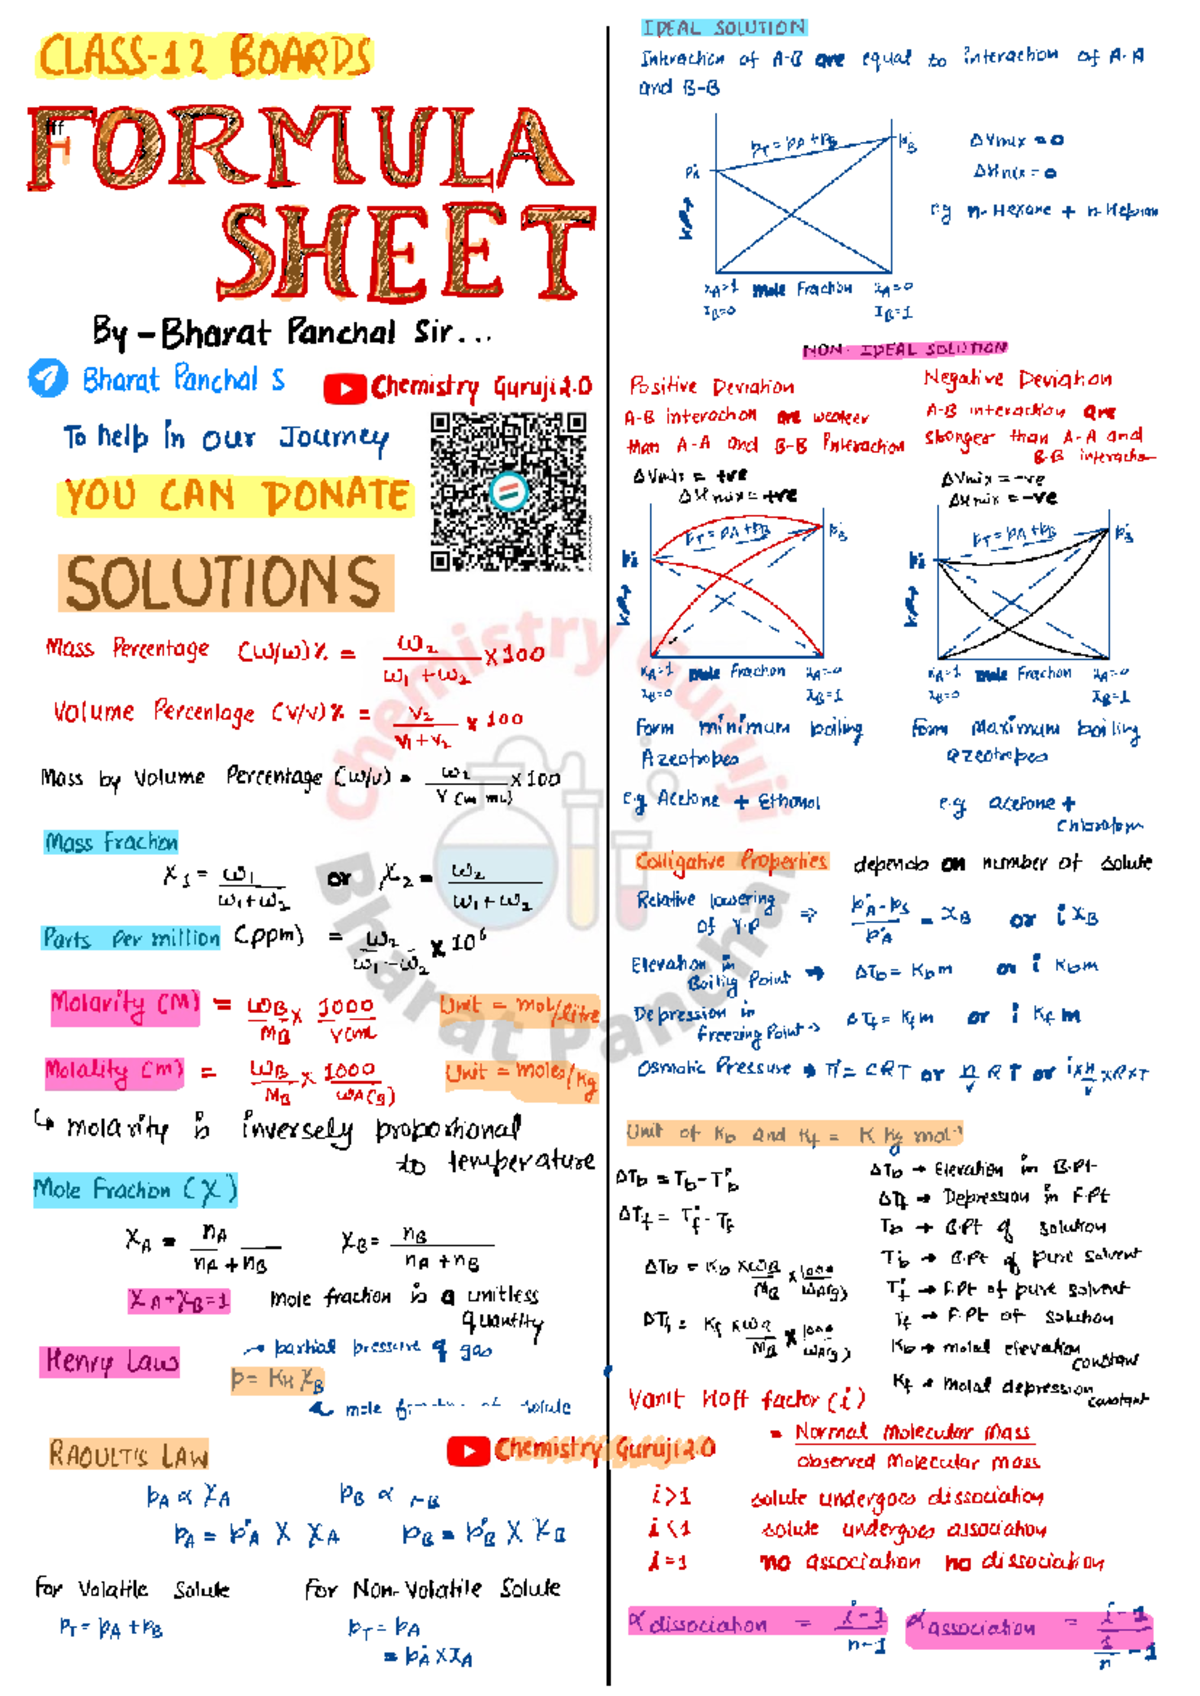 CLASS-12 BOARDS
FORMULA
SHEET
By - Bharat Panchal Sir...
Bharat Panchal S
Chemistry Guruji 2.0
To help in our Journey
YOU CAN DONATE
SOLUTIONS
Mass Percentage (W/W)% = w₂ / w₁ + w₂ × 100
Volume Percentage (V/V)% = V₂ / V₁ + V₂ × 100
Mass by Volume Percentage (W/V) = w₂ / V (in mL) × 100
Mass Fraction
X₁ = w₁ / w₁ + w₂ or X₂ = w₂ / w₁ + w₂
Parts Per million (ppm) = w₂ / w₁ - w₂ × 10⁶
Molarity (M) = WB / MB × 1000 / V(mL Unit = mol/litre
Molality (m) = WB / MB × 1000 / WA(g) Unit = moles/kg
↳ molarity is inversely proportional
to temperature
Mole Fraction (X)
XA = nA / nA + nB XB = nB / nA + nB
XA + XB = 1 mole fraction is a unitless
quantity
Henry Law
→ partial pressure of gas
p = KH XB
mole solute
RAOULT'S LAW
Chemistry Guruji 2.0
pA ∝ XA pB ∝
pA = p°A × XA pB = p°B × XB
For Volatile Solute For Non-Volatile Solute
PT = pA + pB PT = pA
= p°A × XA
IDEAL SOLUTION
Interaction of A-B are equal to interaction of A-A
and B-B
PT = PA + PB p°B
p°A
ΔVmix = 0
ΔHmix = 0
e.g n-Hexane + n-Heptane
XA=1 mole Fraction XA=0
XB=0 XB=1
NON-IDEAL SOLUTION
Positive Deviation
A-B interaction are weaker
than A-A and B-B Interaction
ΔVmix = +ve
ΔHmix = +ve
PT = PA + PB p°B
p°A
XA=1 mole Fraction XA=0
XB=0 XB=1
Form minimum boiling
Azeotropes
e.g Acetone + Ethanol
Negative Deviation
A-B interaction are
stronger than A-A and
B-B interaction
ΔVmix = -ve
ΔHmix = -ve
PT = PA + PB p°B
p°A
XA=1 mole Fraction XA=0
XB=0 XB=1
Form Maximum boiling
azeotropes
e.g acetone +
Chloroform
Colligative Properties depends on number of solute
Relative lowering
of V.P ⇒ p°A - ps / p°A = XB or i XB
Elevation in
Boiling Point → ΔTb = Kb m or i Kb m
Depression in
freezing Point → ΔTf = Kf m or i Kf m
Osmotic Pressure → π = CRT or n/V RT or i × n/V × R × T
Unit of Kb and Kf = K kg mol⁻¹
ΔTb = Tb - T°b
ΔTf = T°f - Tf
ΔTb = Kb × WB / MB × 1000 / WA(g)
ΔTf = Kf × WB / MB × 1000 / WA(g)
ΔTb → Elevation in B.Pt
ΔTf → Depression in F.Pt
Tb → B.Pt of solution
T°b → B.Pt of pure solvent
T°f → F.Pt of pure solvent
Tf → F.Pt of solution
Kb → molal elevation
constant
Kf → Molal depression
constant
Vanit Hoff factor (i)
= Normal Molecular Mass
observed Molecular mass
i>1 solute undergoes dissociation
i<1 solute undergoes association
i=1 no association no dissociation
∝ dissociation = i-1 / n-1
∝ association = i-1 / 1/n - 1
Chemistry Guruji
Bharat Panchal